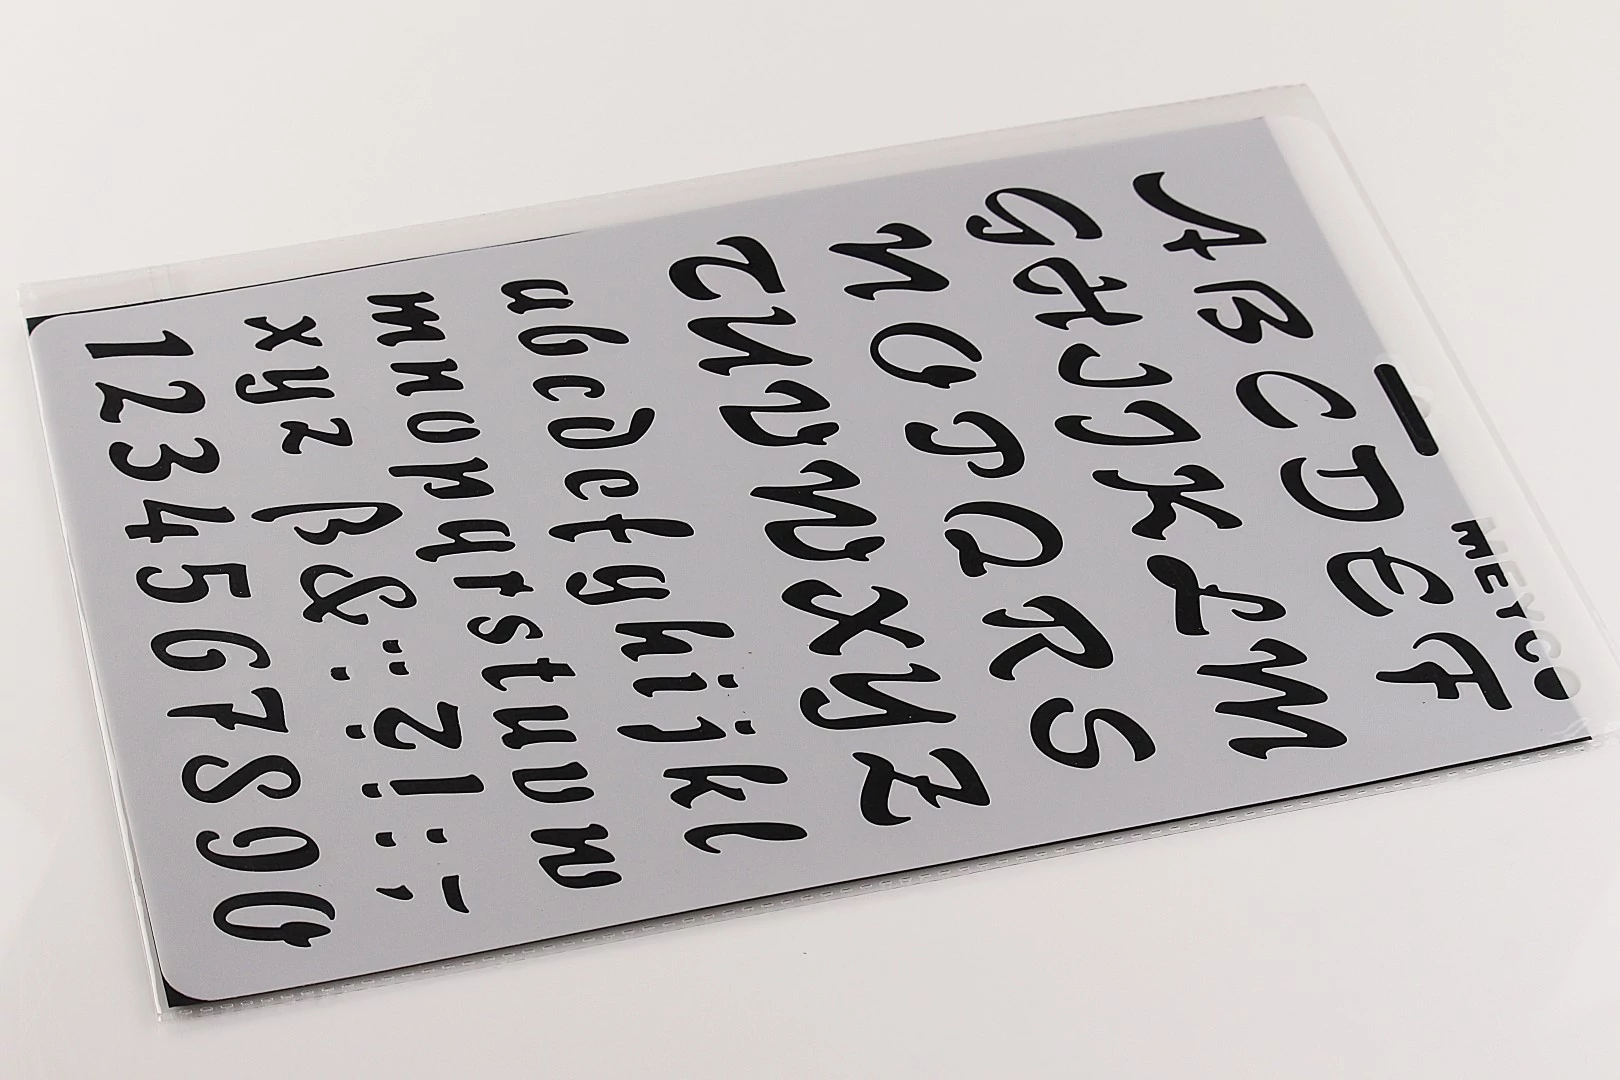 MEYCO
A B C D E F
G H I J K L M
N O P Q R S
T U V W X Y Z
a b c d e f g h i j k l
m n o p q r s t u v w
x y z ß & ¨ . ? ! : ; -
1 2 3 4 5 6 7 8 9 0